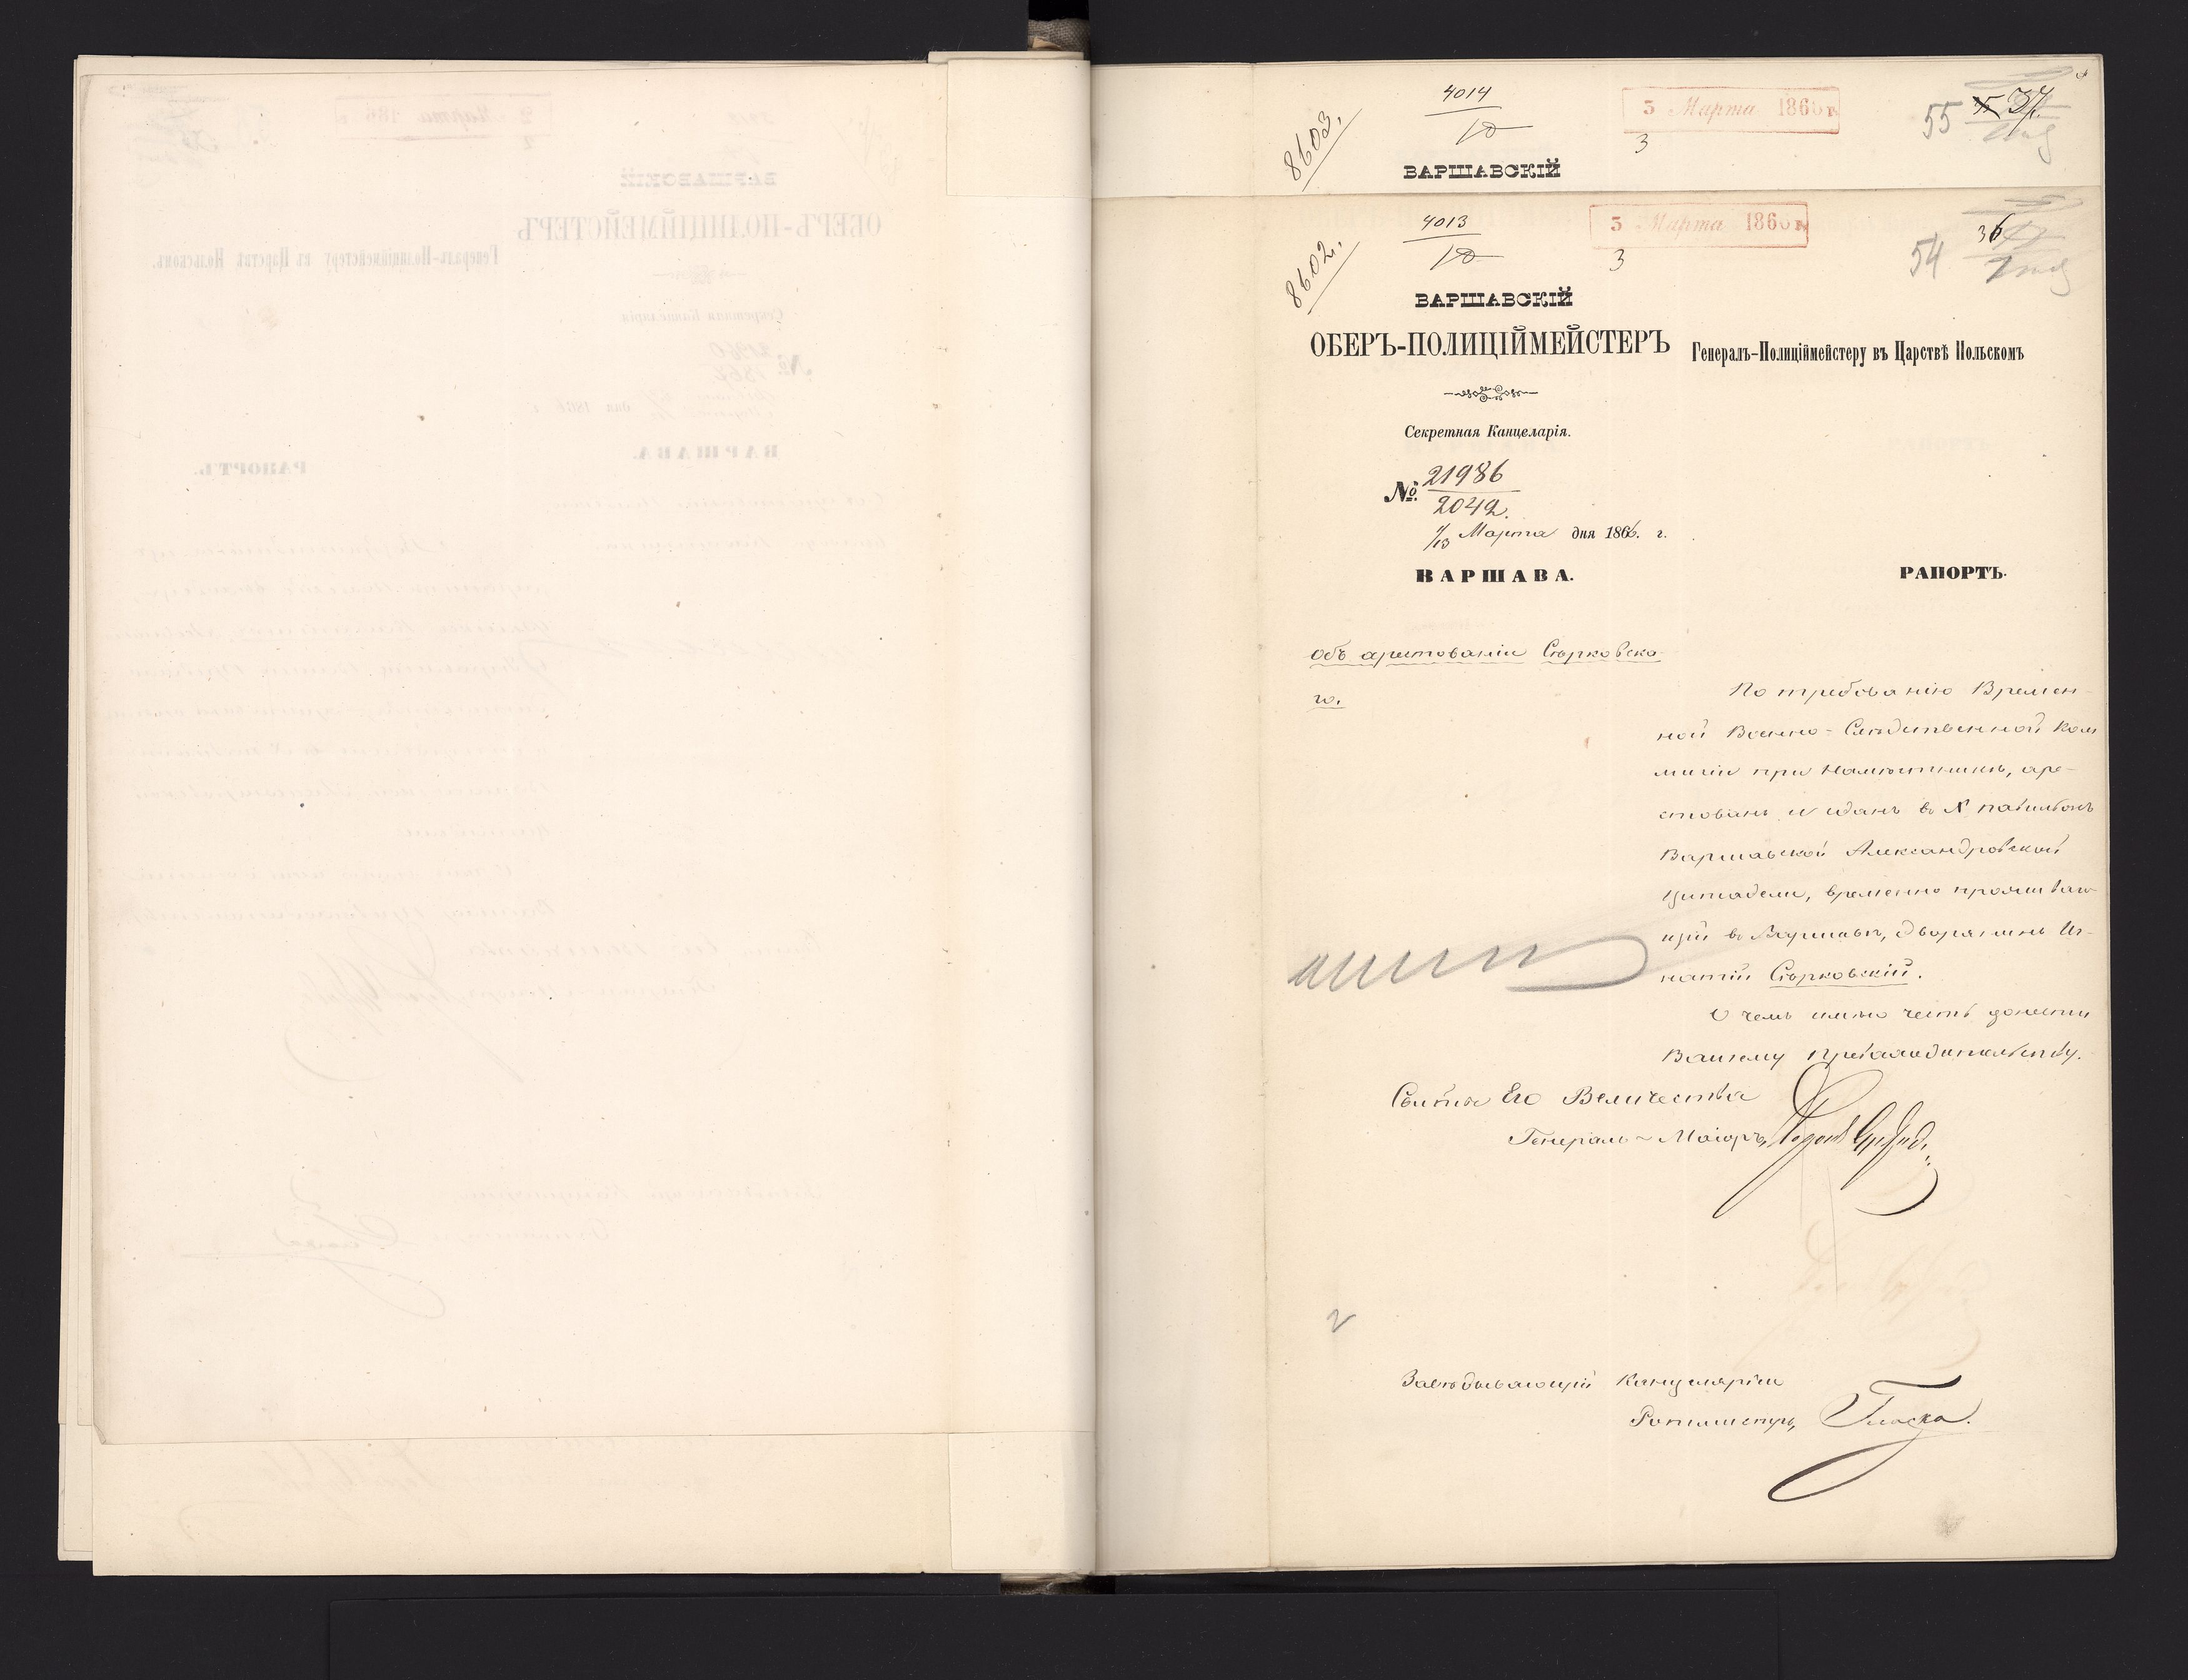 4014
10
8603.
3 Марта 1866 г.
3
55
37.
ВАРШАВСКІЙ
4013
10
8602.
3 Марта 1866 г.
3
54
36
ВАРШАВСКІЙ
ОБЕРЪ-ПОЛИЦІЙМЕЙСТЕРЪ
Генералъ-Полиціймейстеру въ Царствѣ Польскомъ
Секретная Канцелярія.
№ 21986
2042.
1/13 Марта дня 1866. г.
ВАРШАВА.
РАПОРТЪ.
Объ арестованіи Сѣрковска-
го.
По требованію Времен-
ной Военно-Слѣдственной Ком
мисіи при Намѣстникѣ, аре-
стованъ и сданъ въ X павильонъ
Варшавской Александровской
Цитадели, временно проживаю-
щій въ Варшавѣ, дворянинъ Иг-
натій Сѣрковскій.
О чемъ имѣю честь донести
Вашему Превосходительству.
Свиты Его Величества
Генералъ-Маіоръ,
Завѣдывающій Канцеляріею
Ротмистръ,